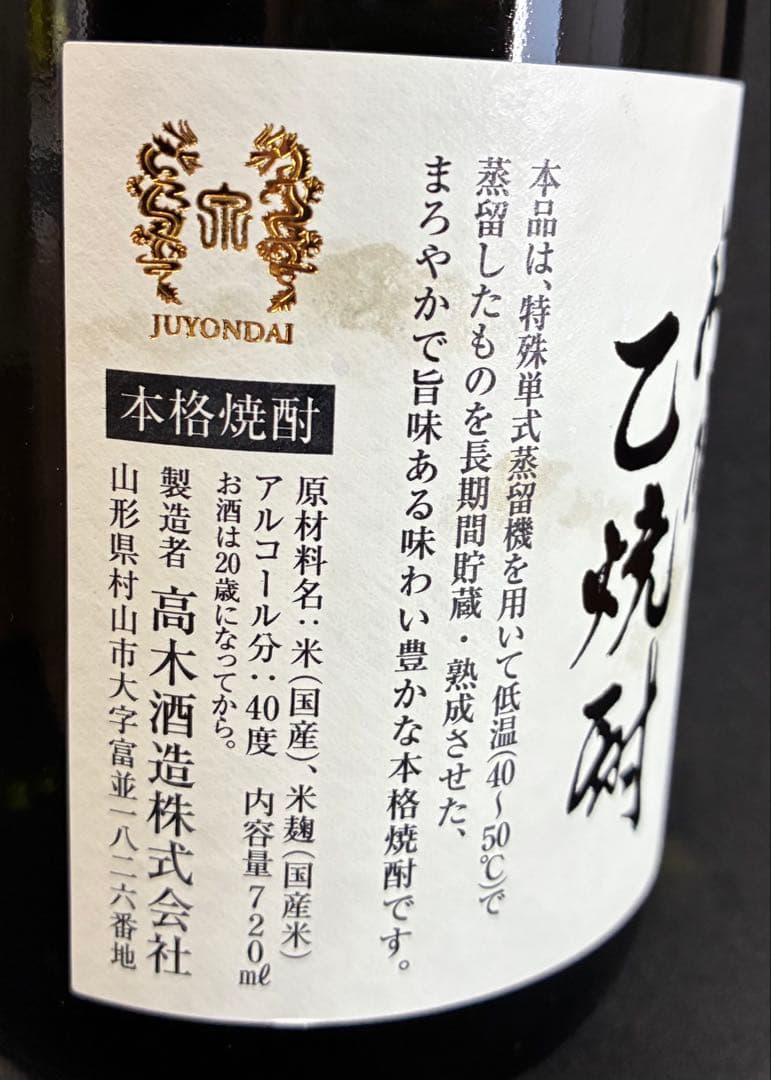 乙焼酎
本品は、特殊単式蒸留機を用いて低温(40〜50℃)で
蒸留したものを長期間貯蔵・熟成させた、
まろやかで旨味ある味わい豊かな本格焼酎です。
JUYONDAI
本格焼酎
原材料名:米(国産)、米麹(国産米)
アルコール分:40度 内容量720ml
お酒は20歳になってから。
製造者 高木酒造株式会社
山形県村山市大字富並一八二六番地